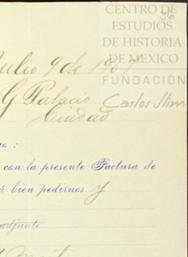 CENTRO DE
ESTUDIOS
DE HISTORIA
DE MEXICO
FUNDACIÓN
Carlos Slim
36
Julio 9 de 190
G Palacio
Ciudad
o :
con la presente Factura de
bien pedirnos y
adjunto